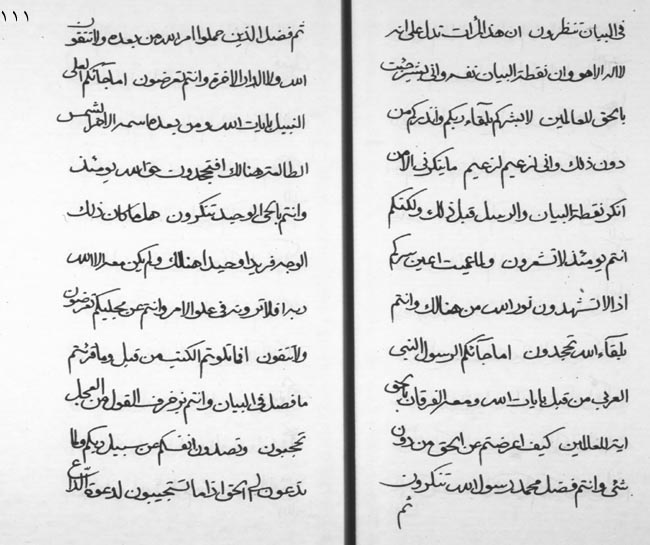 في البيان تنظرون ان هذا لٓايات تدل على انه
لااله الاهو وان نقطة البيان نفسه واني بشير جئت
بالحق للعالمين لابشركم بلقاء ربكم وانذركم من
دون ذلك واني لزعيم لزعيم ماينكرني الامن
انكر نقطة البيان والرسل قبل ذلك ولكنكم
انتم يومئذ لاتشعرون ولما عميت اعين سركم
اذا لاتشهدون نور الله من هنالك وانتم
بلقاء الله تجحدون اماجآئكم الرسول النبي
العربي من قبل بايات الله ومعه الفرقان بالحق
اية للعالمين كيف اعرضتم عن الحق من دون
شئ وانتم فضل محمد رسول الله تنكرون
ثم
١١١
ثم فضل الذين حملوا امر الله من بعده ولاتتقون
الله ولا الدار الاخرة وانتم تعرضون اماجآئكم العلي
النبيل بايات الله ومن بعده اسمه الاخر الشمس
الطالعة هنالك افتجحدون حق الله يومئذ
وانتم بالحي الوحيد تنكرون هل ماكان ذلك
الوجه فريدا وحيدا هنالك ولم يكن معه الا الله
ربه افلاترونه في علو الامر وانتم عن مجليكم تعرضون
ولاتتقون افماتلوتم الكتب من قبل وماقرئتم
مافصل في البيان وانتم زخرف القول من العجل
تحجبون وتصدون انفسكم عن سبيل ربكم ولما
تدعون الى الحق اذا ماتستجيبون لدعوة الداع